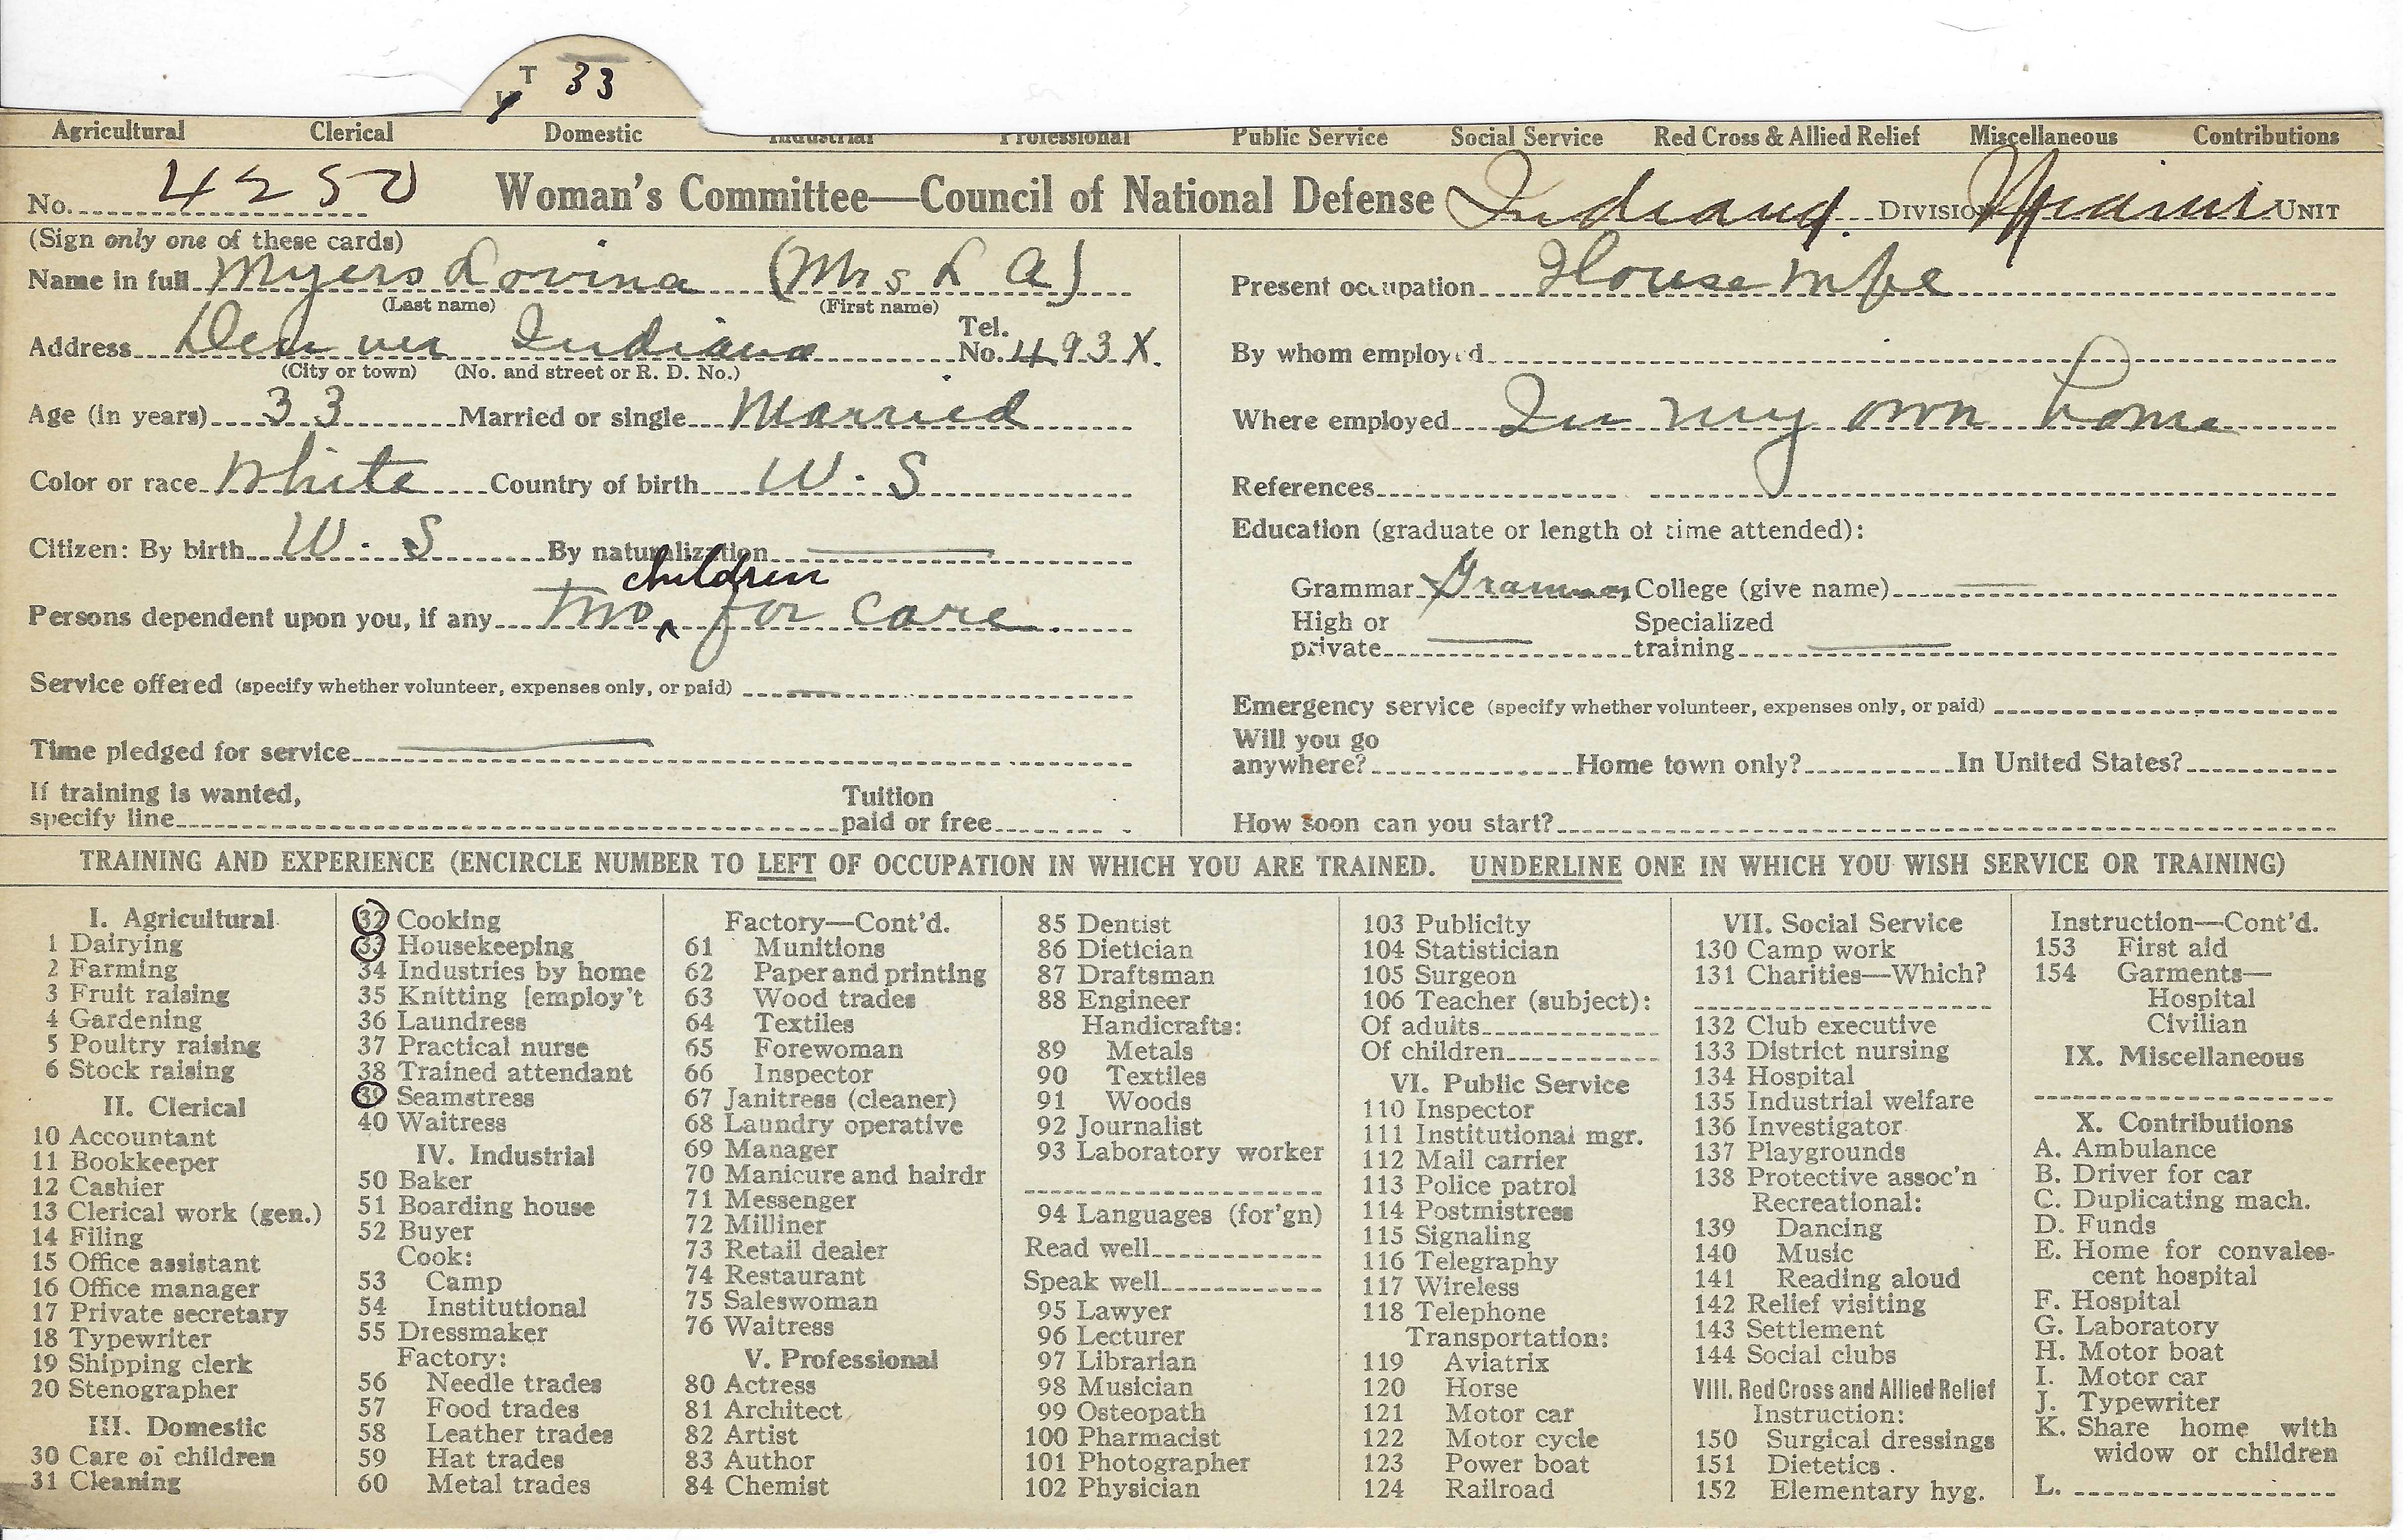 T 33
Agricultural Clerical Domestic Industrial Professional Public Service Social Service Red Cross & Allied Relief Miscellaneous Contributions
No. 4250 Woman's Committee—Council of National Defense Indiana Division Miami Unit
(Sign only one of these cards)
Name in full Myers Lovina (Mrs L A)
(Last name) (First name)
Address Denver Indiana Tel. No. 493X.
(City or town) (No. and street or R. D. No.)
Age (in years) 33 Married or single Married
Color or race White Country of birth U.S
Citizen: By birth U.S By naturalization
children
Persons dependent upon you, if any Two ^ for care
Service offered (specify whether volunteer, expenses only, or paid)
Time pledged for service
If training is wanted, specify line Tuition paid or free
Present occupation House wife
By whom employed
Where employed In my own home
References
Education (graduate or length of time attended):
Grammar Grammar College (give name)
High or private Specialized training
Emergency service (specify whether volunteer, expenses only, or paid)
Will you go anywhere? Home town only? In United States?
How soon can you start?
TRAINING AND EXPERIENCE (ENCIRCLE NUMBER TO LEFT OF OCCUPATION IN WHICH YOU ARE TRAINED. UNDERLINE ONE IN WHICH YOU WISH SERVICE OR TRAINING)
I. Agricultural
1 Dairying
2 Farming
3 Fruit raising
4 Gardening
5 Poultry raising
6 Stock raising
II. Clerical
10 Accountant
11 Bookkeeper
12 Cashier
13 Clerical work (gen.)
14 Filing
15 Office assistant
16 Office manager
17 Private secretary
18 Typewriter
19 Shipping clerk
20 Stenographer
III. Domestic
30 Care of children
31 Cleaning
32 Cooking
33 Housekeeping
34 Industries by home
35 Knitting [employ't
36 Laundress
37 Practical nurse
38 Trained attendant
39 Seamstress
40 Waitress
IV. Industrial
50 Baker
51 Boarding house
52 Buyer
Cook:
53 Camp
54 Institutional
55 Dressmaker
Factory:
56 Needle trades
57 Food trades
58 Leather trades
59 Hat trades
60 Metal trades
Factory—Cont'd.
61 Munitions
62 Paper and printing
63 Wood trades
64 Textiles
65 Forewoman
66 Inspector
67 Janitress (cleaner)
68 Laundry operative
69 Manager
70 Manicure and hairdr
71 Messenger
72 Milliner
73 Retail dealer
74 Restaurant
75 Saleswoman
76 Waitress
V. Professional
80 Actress
81 Architect
82 Artist
83 Author
84 Chemist
85 Dentist
86 Dietician
87 Draftsman
88 Engineer
Handicrafts:
89 Metals
90 Textiles
91 Woods
92 Journalist
93 Laboratory worker
94 Languages (for'gn)
Read well
Speak well
95 Lawyer
96 Lecturer
97 Librarian
98 Musician
99 Osteopath
100 Pharmacist
101 Photographer
102 Physician
103 Publicity
104 Statistician
105 Surgeon
106 Teacher (subject):
Of adults
Of children
VI. Public Service
110 Inspector
111 Institutional mgr.
112 Mail carrier
113 Police patrol
114 Postmistress
115 Signaling
116 Telegraphy
117 Wireless
118 Telephone
Transportation:
119 Aviatrix
120 Horse
121 Motor car
122 Motor cycle
123 Power boat
124 Railroad
VII. Social Service
130 Camp work
131 Charities—Which?
132 Club executive
133 District nursing
134 Hospital
135 Industrial welfare
136 Investigator
137 Playgrounds
138 Protective assoc'n
Recreational:
139 Dancing
140 Music
141 Reading aloud
142 Relief visiting
143 Settlement
144 Social clubs
VIII. Red Cross and Allied Relief
Instruction:
150 Surgical dressings
151 Dietetics
152 Elementary hyg.
Instruction—Cont'd.
153 First aid
154 Garments—
Hospital
Civilian
IX. Miscellaneous
X. Contributions
A. Ambulance
B. Driver for car
C. Duplicating mach.
D. Funds
E. Home for convales-
cent hospital
F. Hospital
G. Laboratory
H. Motor boat
I. Motor car
J. Typewriter
K. Share home with
widow or children
L.